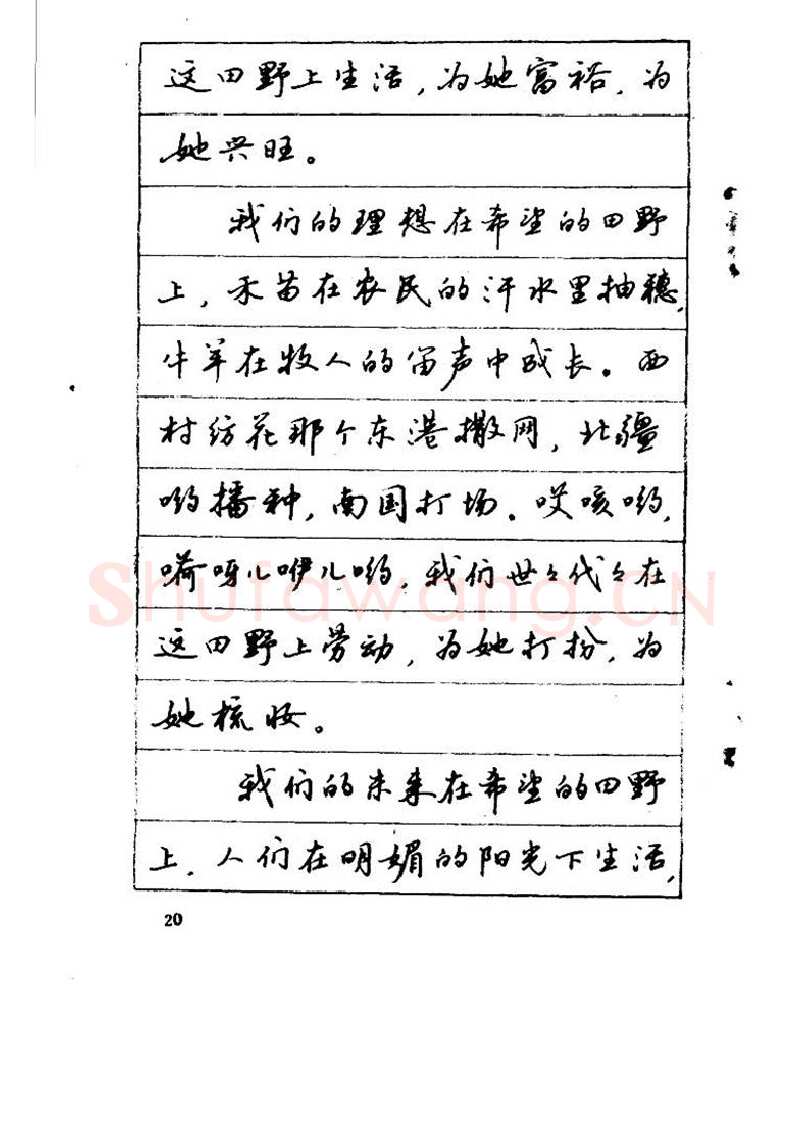 这田野上生活,为她富裕,为
她兴旺。
我们的理想在希望的田野
上,禾苗在农民的汗水里抽穗,
牛羊在牧人的笛声中成长。西
村纺花那个东港撒网,北疆
哟播种,南国打场。哎咳哟,
嗬呀儿咿儿哟,我们世々代々在
这田野上劳动,为她打扮,为
她梳妆。
我们的未来在希望的田野
上,人们在明媚的阳光下生活,
20
Shufawang.CN